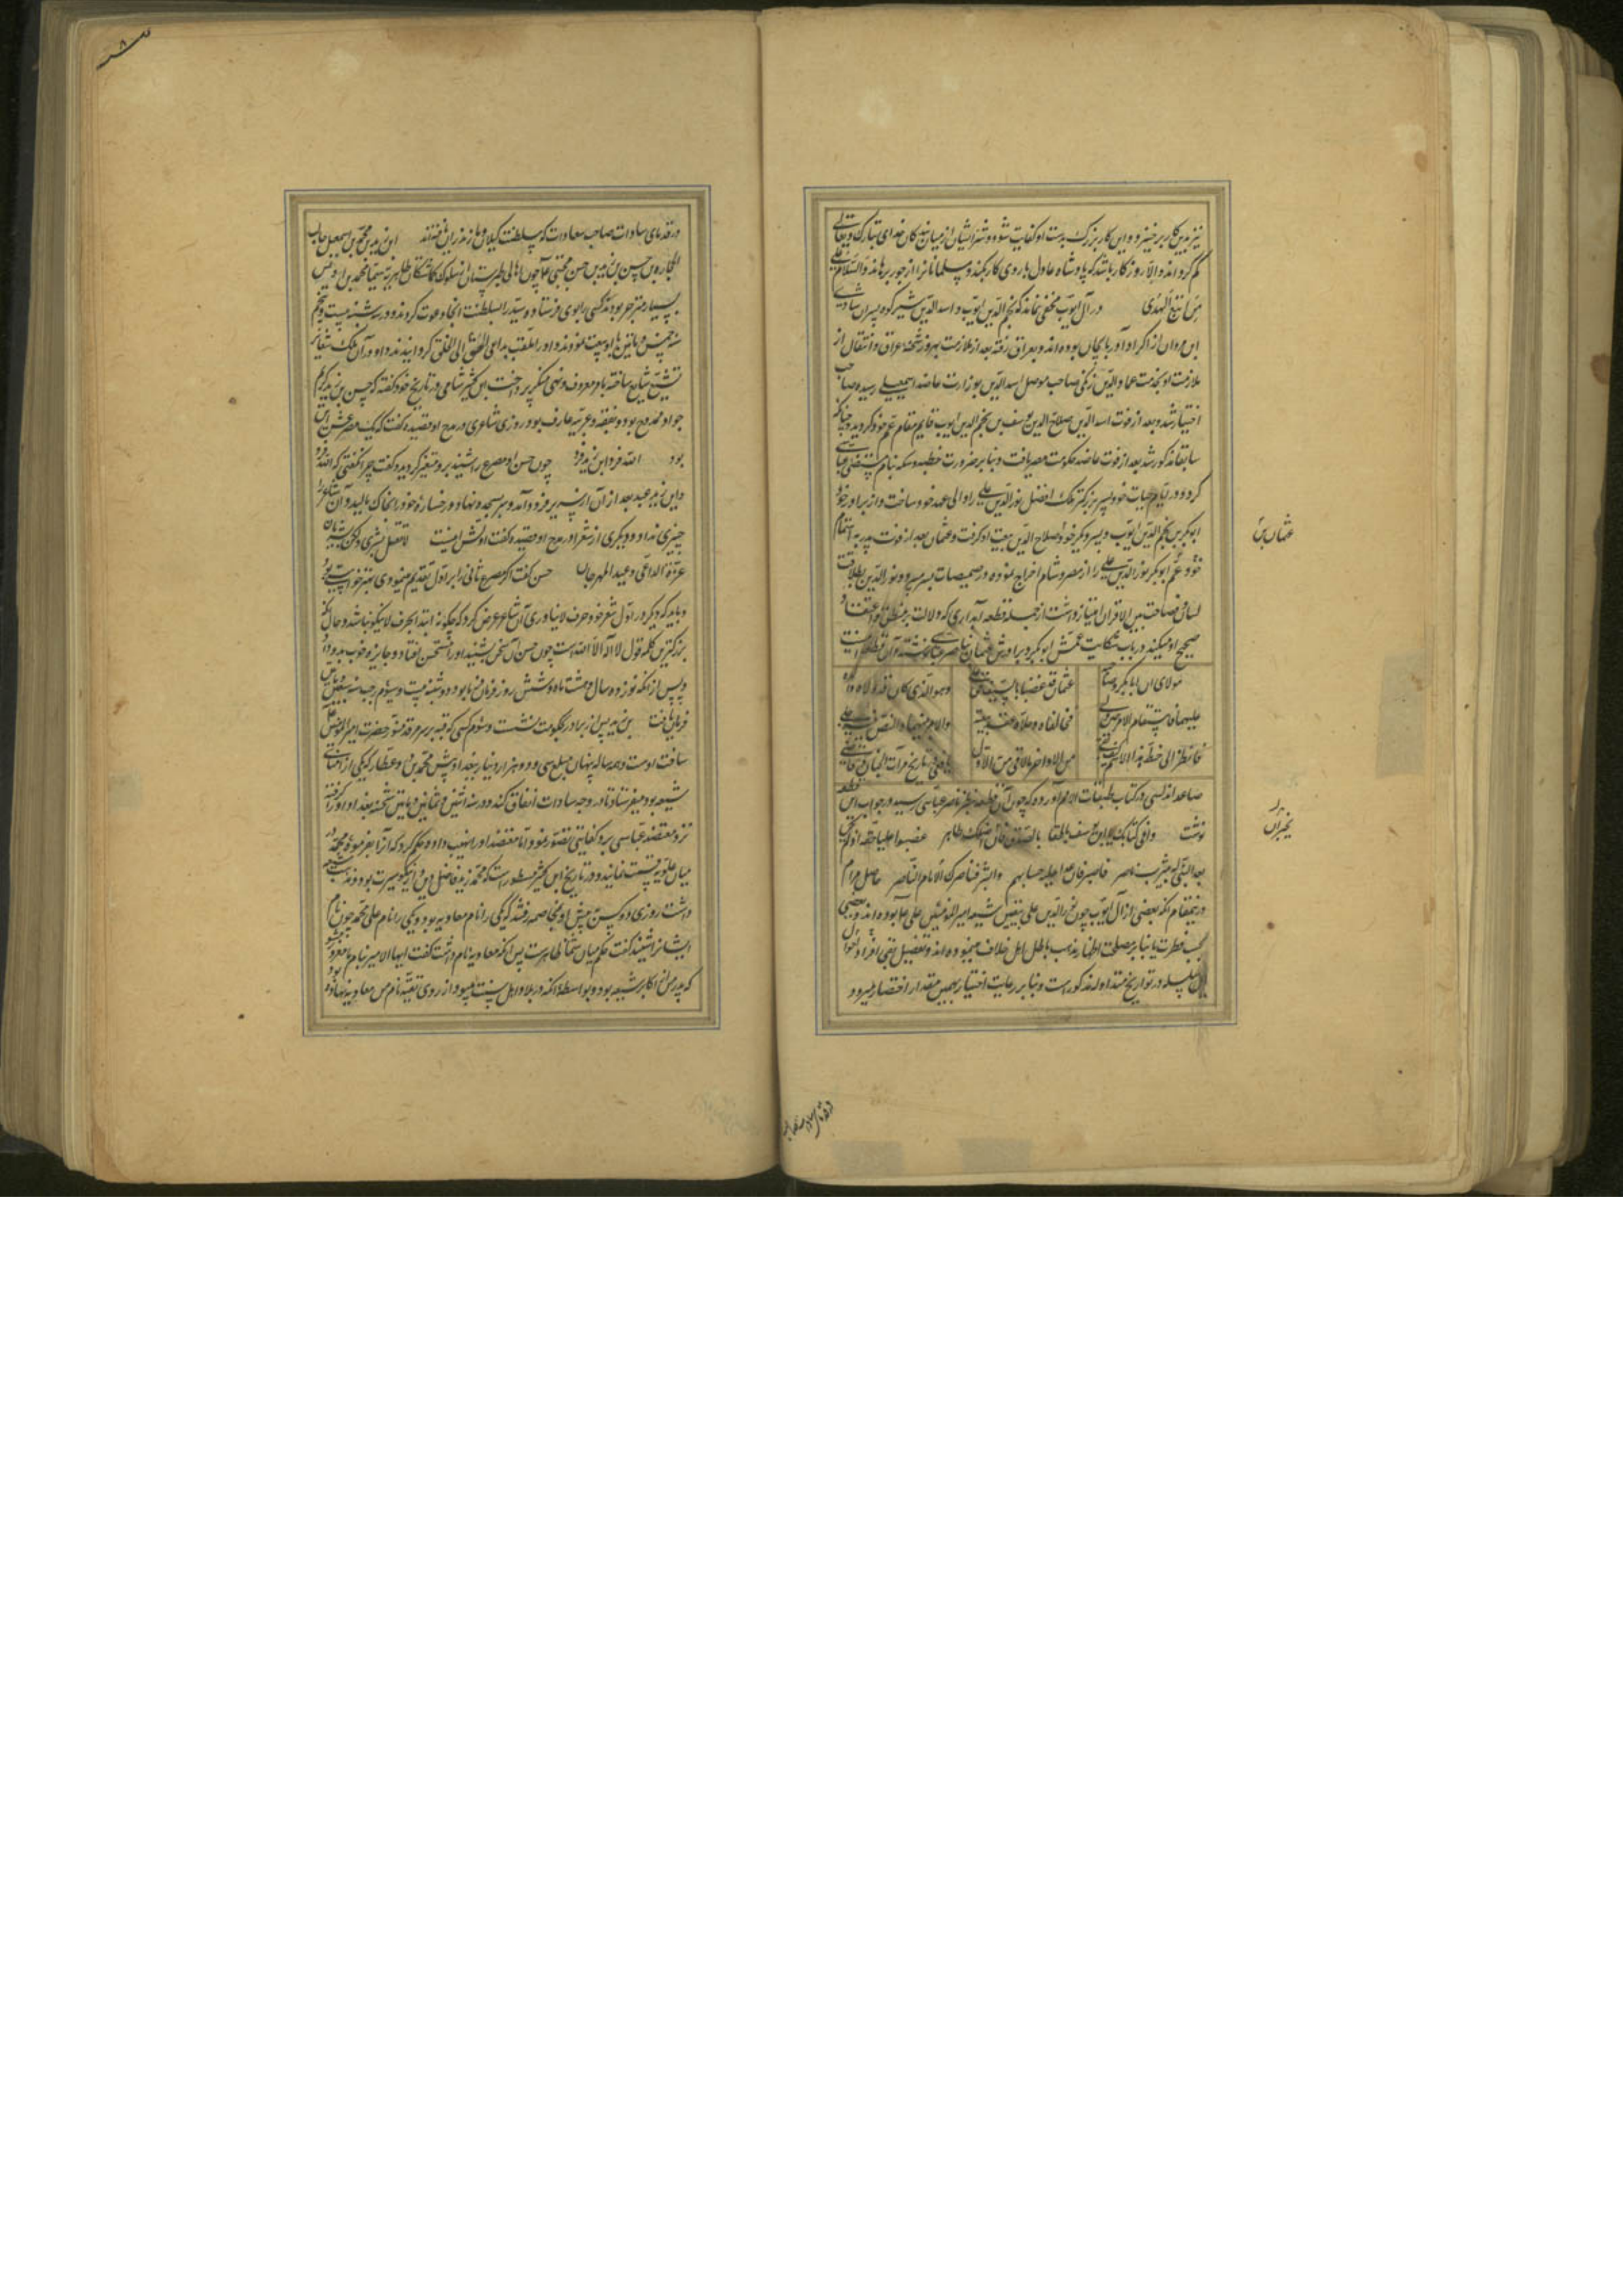 نیز بدین کار بر خیزد و این کار بزرک بدست او کفایت شود و شر ایشان از میان بندکان خدای تبارک و تعالی
کم کرداند و الا روزکار باشد که پادشاه عادل باروی کار بکند و مسلمانانرا از جور برهاند والسلام علی
من اتبع الهدی در آل ایوب مخفی نماند که نجم الدین ایوب و اسد الدین شیرکوه پسران شادی
ابن مروان از اکراد آذربایجان بوده اند و بعراق رفته بعد از ملازمت بهروز شحنه عراق و انتقال از
ملازمت او بخدمت عماد الدین زنکی صاحب موصل اسد الدین بوزارت عاضد اسمعیلی رسیده صاحب
اختیار شد و بعد از فوت اسد الدین صلاح الدین یوسف بن نجم الدین ایوب قایم مقام عم خود کردید و چنانکه
سابقا مذکور شد بعد از فوت عاضد حکومت مصر یافت و بنابر ضرورت خطبه و سکه بنام مستضی عباسی
کرد و در ایام حیات خود پسر بزرکتر ملک افضل نور الدین علی را ولی عهد خود ساخت و از برادر خود
ابوبکر بن نجم الدین ایوب و پسر دیکر خود صلاح الدین بیعت او کرفت و عثمان بعد از فوت پدر به اهتمام
عثمان بن
خود و عم ابوبکر نور الدین علی را از مصر و شام اخراج نموده در صمیصات بسر میبرد و نور الدین بطلاقت
لسان و فصاحت بین الاقران امتیاز داشت از جمله قطعه آبداری که دلالت بر منطق و اعتقاد
صحیح او میکند در باب شکایت عمش ابوبکر و برادرش عثمان بناصر عباسی نوشته و آن قطعه اینست
مولای ان ابابکر و صاحبه عثمان قد غضبا بالسیف حق علی وهو الذی کان قد ولاه والده
علیهما فاستقام الامر حین ولی فخالفاه وحلا عقد بیعته والامر بینهما والنص فیه جلی
فانظر الی حظ هذا الاسم کیف لقی من الاواخر مالاقی من الاول یافعی در تاریخ مرآت الجنان و قاضی
صاعد اندلسی در کتاب طبقات الامم آورده که چون آن قطعه بنظر ناصر عباسی رسید در جواب این قطعه
نوشت وافی کتابک یا ابن یوسف ناطقا بالصدق ان اصلک طاهر غصبوا علیا حقه اذ لم یکن
بعد النبی له بیثرب ناصر فاصبر فان علیه حسابهم وابشر فناصرک الامام الناصر حاصل مرام
درینمقام آنکه بعضی از آل ایوب چون نور الدین علی بیقین شیعه امیر المؤمنین علی بوده اند و بعضی
بحسب فطرت یا بنابر مصلحت اظهار مذهب باطل اهل خلاف مینموده اند و تفصیل باقی افراد و احوال
این سلسله در تواریخ متداوله مذکور است و بنابر رعایت اختیار بهمین مقدار اختصار میرود
در قدمای سادات صاحب سعادت که بسلطنت کیلان و مازندران یافته اند ابن زید بن محمد بن اسمعیل جالب
الحجاره بن حسن بن زید بن حسن مجتبی چون اهالی طبرستان از سلوک کماشتکان طاهریه سیما محمد بن اوس
بسیار منزجر بودند کسی را بوی فرستاده سید را بسلطنت انجا دعوت کردند و در سه شنبه بیست و پنجم
سنه خمسین و ماتین با او بیعت نمودند و او را ملقب بداعی الخلق الی الحق کردانیدند و او در آن ملک شعایر
تشیع شایع ساخته بامر معروف و نهی منکر پرداخت ابن کثیر شامی در تاریخ خود کفته که حسن بن زید کریم
جواد ممدوح بود و بفقه و عربیه عارف بود روزی شاعری در مدح او قصیده کفت که یک مصرعش این
بود الله فرد و ابن زید فرد چون حسن او مصرع را شنید بر او متغیر کردید و کفت چرا نکفتی که الله فرد
و ابن زید عبد بعد از آن از سریر فرود آمد و سر بسجده نهاد و رخساره خود را بخاک مالید و آن شاعر را
چیزی نداد و دیکری از شعرا در مدح او قصیده کفت اولش اینست لا تقل بشری ولکن بشریان
غرة الداعی و عید المهرجان حسن کفت اکر مصرع ثانی را بر اول تقدیم مینمودی بهتر خواستی بود
و باید که دیکر در اول شعر خود حرف لا نیاوری آن شاعر عرض کرد که چکونه ابتدا بحرف لا نیکو نباشد و حال آنکه
بزرکترین کلمه قول لا اله الا الله است چون حسن آن سخن بشنید او را مستحسن افتاد و جایزه خوب بدو داد
و پس از انکه نوزده سال و هشت ماه و شش روز فرمان فرما بود دوشنبه بیست و سیوم رجب سنه سبعین و ماتین
فرمان یافت بن زید پس از برادر بحکومت نشست و سیوم کسی که قبه بر سر مرقد منور حضرت امیر المؤمنین علی
ساخت اوست و همه ساله پنهان مبلغ سی و دو هزار دینار ببغداد پیش محمد بن ورد عطار که یکی از امنای
شیعه بود میفرستاد تا در وجه سادات انفاق کند و در سنه اثنین و ثمانین و ماتین شحنه بغداد او را کرفته
نزد معتضد عباسی برد کفایتی تصور نمود اما معتضد او را نهیب داده حکم کرد که آن زر را بفرموده محمد در
میان علویه قسمت نماید و در تاریخ ابن کثیر مسطور است که محمد زید فاضل دین دار نیکو سیرت بود و مذهب شیعه
داشت روزی دو کس پیش او بمخاصمه رفتند که یکی را نام معاویه بود و یکی را نام علی محمد چون نام
ایشان را شنید کفت حکم میان شما ظاهر است پس آنکه معاویه نام داشت کفت ایها الامیر بنام ما مغرور مشو
که پدر من از اکابر شیعه بود و بواسطه آنکه در بلاد اهل سنت میبود از روی تقیه نام من معاویه نهاده بود